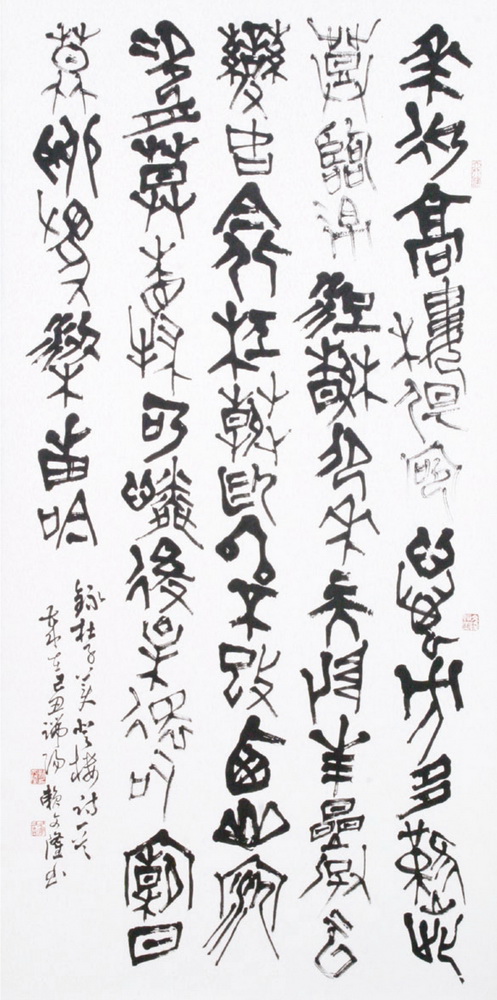 花近高樓傷客心萬方多難此
登臨錦江春色來天地玉壘浮雲
變古今北極朝廷終不改西山寇
盜莫相侵可憐後主還祠廟日
暮聊為梁甫吟
錄杜子美登樓詩一首
歲在己丑端陽 賴文隆書